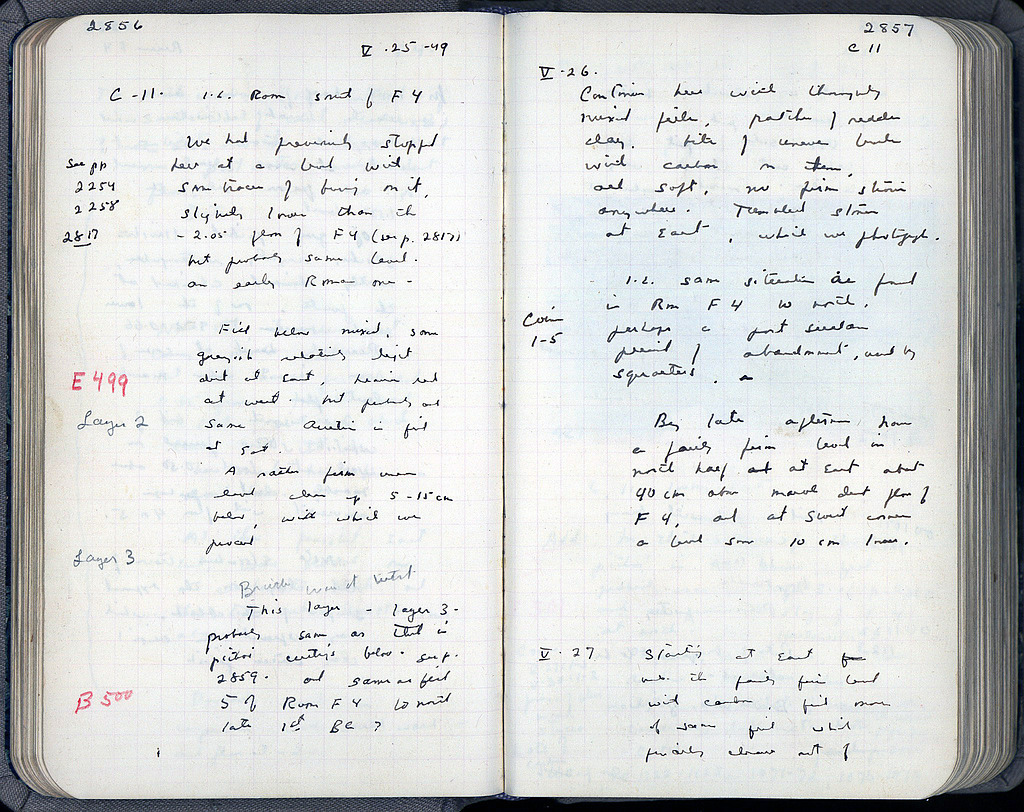 2856
V · 25 - 49
C - 11. i.e. Room south of F 4
We had previously stopped
See pp
here at a level with
2254
some traces of burning on it,
2258
slightly lower than the
2817
- 2.05 floor of F 4 (see p. 2817)
but probably same level.
an early Roman one -
Fill below mixed, some
grayish relatively light
dirt at east, remain red
E 499
at west. but probably all
Layer 2
same in fill
at
A rather firm uneven
level clean up 5 - 15 cm
below, with which we
proceed
Layer 3
This layer - layer 3 -
probably same as that in
below. see p.
2859. and same as fill
B 500
5 of Room F 4 to north
late 1st BC ?
2857
C 11
V · 26.
Continue here with thoroughly
mixed fill, patches of redder
clay, bits of uneven
with carbon on them,
all soft, no firm
anywhere. Tumbled stones
at East, which we photograph.
i.e. same situation as found
in Rm F 4 to north.
Coins
perhaps a post
1-5
period of abandonment, used by
squatters.
By late afternoon, have
a fairly firm level in
north half and at East about
40 cm above marvel dust floor of
F 4, and at SWest corner
a level some 10 cm lower.
V · 27
Starting at East
the fairly firm level
with carbon, find more
of same fill which
out of